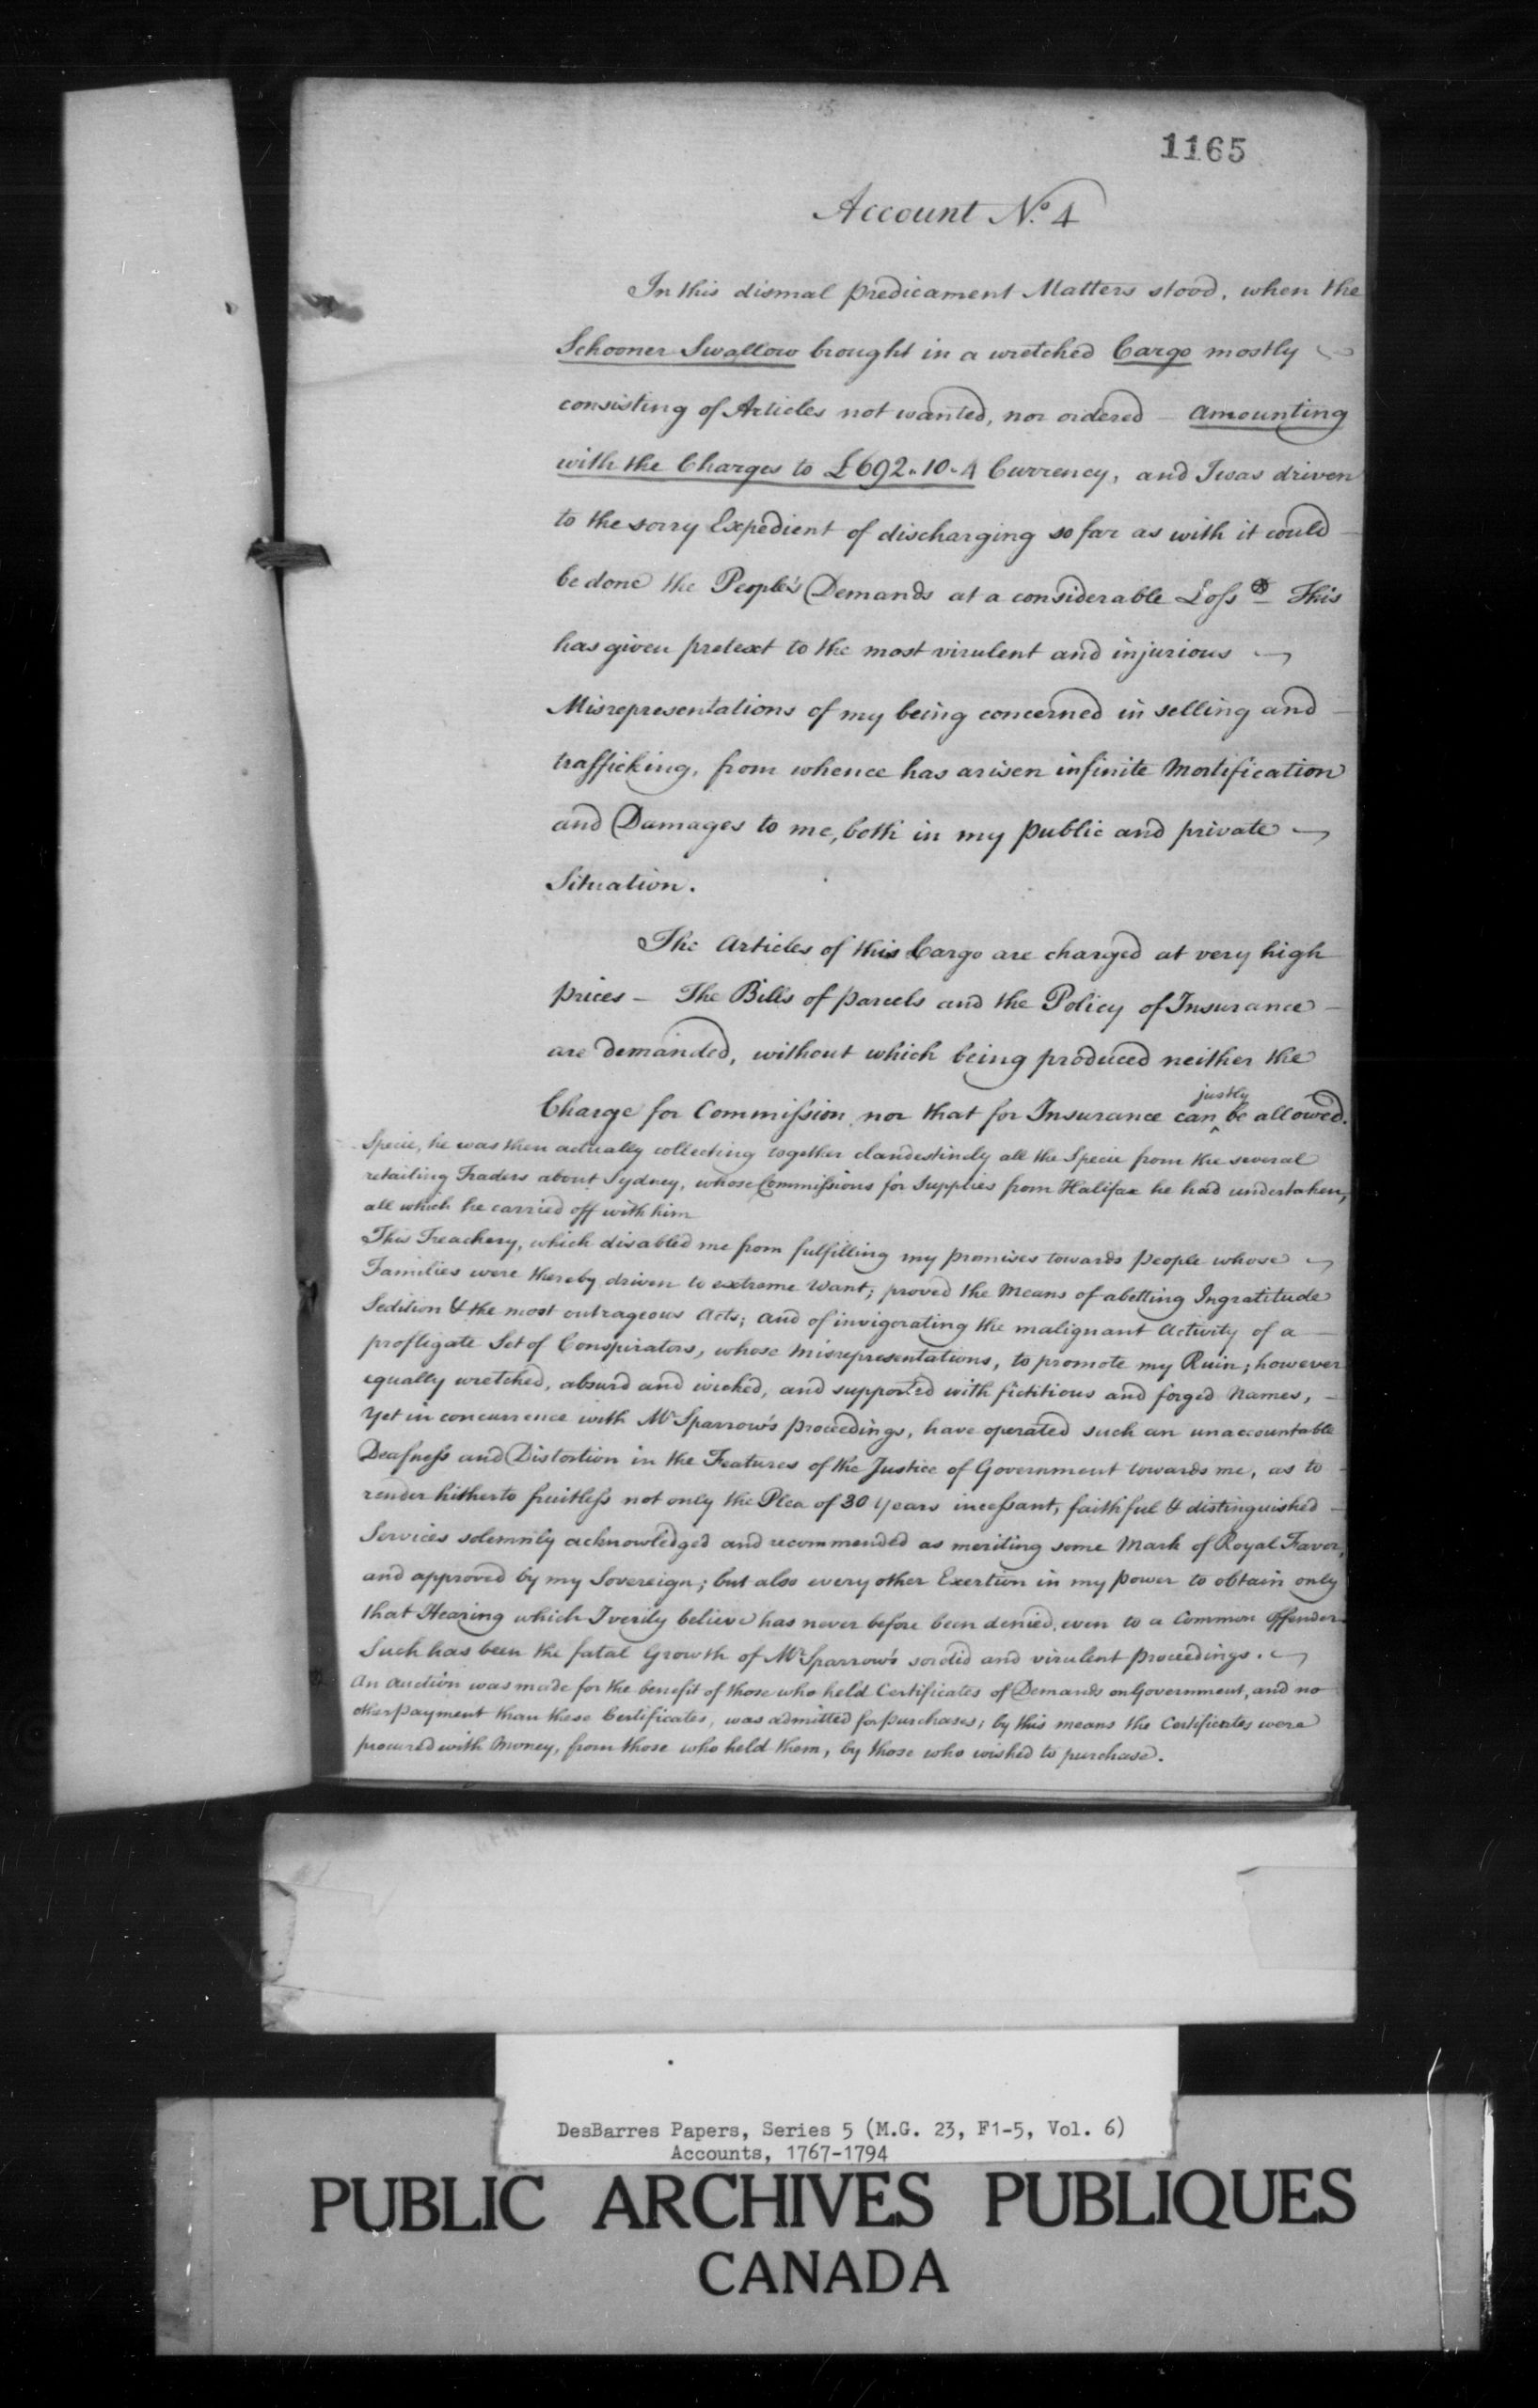 1165
Account No. 4
In this dismal predicament Matters stood, when the
Schooner Swallow brought in a wretched Cargo mostly
consisting of Articles not wanted, nor ordered — amounting
with the Charges to £692.10.4 Currency, and I was driven
to the sorry Expedient of discharging so far as with it could
be done the People's Demands at a considerable Loſs * This
has given pretext to the most virulent and injurious
Misrepresentations of my being concerned in selling and
trafficking, from whence has arisen infinite Mortification
and Damages to me, both in my public and private
Situation.
The Articles of this Cargo are charged at very high
prices — The Bills of parcels and the Policy of Insurance
are demanded, without which being produced neither the
Charge for Commiſsion nor that for Insurance can ^justly be allowed.
Specie, he was then actually collecting together clandestinely all the Specie from the several
retailing Traders about Sydney, whose Commiſsions for Supplies from Halifax he had undertaken,
all which he carried off with him
This Treachery, which disabled me from fulfilling my promises towards People whose
Families were thereby driven to extreme Want; proved the Means of abetting Ingratitude
Sedition & the most outrageous Acts; and of invigorating the malignant Activity of a
profligate Set of Conspirators, whose Misrepresentations, to promote my Ruin; however
equally wretched, absurd and wicked, and supported with fictitious and forged Names,
Yet in concurrence with Mr Sparrow's proceedings, have operated such an unaccountable
Deafneſs and Distortion in the Features of the Justice of Government towards me, as to
render hitherto fruitleſs not only the Plea of 30 years inceſsant, faithful & distinguished
Services solemnly acknowledged and recommended as meriting some Mark of Royal Favor,
and approved by my Sovereign; but also every other Exertion in my power to obtain only
that Hearing which I verily believe has never before been denied, even to a Common Offender
Such has been the fatal Growth of Mr Sparrow's sordid and virulent proceedings.
An Auction was made for the benefit of those who held Certificates of Demands on Government, and no
other payment than these Certificates, was admitted for purchases; by this means the Certificates were
procured with Money, from those who held them, by those who wished to purchase.
DesBarres Papers, Series 5 (M.G. 23, F1-5, Vol. 6)
Accounts, 1767-1794
PUBLIC ARCHIVES PUBLIQUES
CANADA